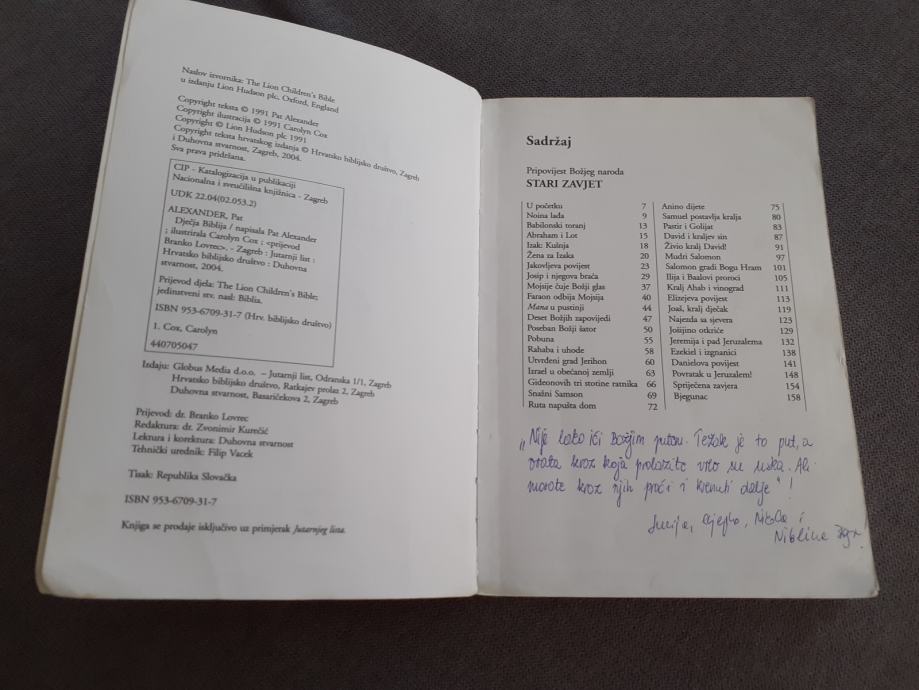 Naslov izvornika: The Lion Children's Bible
u izdanju Lion Hudson plc, Oxford, England
Copyright teksta © 1991 Pat Alexander
Copyright ilustracija © 1991 Carolyn Cox
Copyright © Lion Hudson plc 1991
Copyright teksta hrvatskog izdanja © Hrvatsko biblijsko društvo, Zagreb
i Duhovna stvarnost, Zagreb, 2004.
Sva prava pridržana.
CIP - Katalogizacija u publikaciji
Nacionalna i sveučilišna knjižnica - Zagreb
UDK 22.04(02.053.2)
ALEXANDER, Pat
Dječja Biblija / napisala Pat Alexander
; ilustrirala Carolyn Cox ; <prijevod
Branko Lovrec>. - Zagreb : Jutarnji list :
Hrvatsko biblijsko društvo : Duhovna
stvarnost, 2004.
Prijevod djela: The Lion Children's Bible;
jedinstveni stv. nasl: Biblia.
ISBN 953-6709-31-7 (Hrv. biblijsko društvo)
1. Cox, Carolyn
440705047
Izdaju: Globus Media d.o.o. – Jutarnji list, Odranska 1/1, Zagreb
Hrvatsko biblijsko društvo, Ratkajev prolaz 2, Zagreb
Duhovna stvarnost, Basaričekova 2, Zagreb
Prijevod: dr. Branko Lovrec
Redaktura: dr. Zvonimir Kurečić
Lektura i korektura: Duhovna stvarnost
Tehnički urednik: Filip Vacek
Tisak: Republika Slovačka
ISBN 953-6709-31-7
Knjiga se prodaje isključivo uz primjerak Jutarnjeg lista.
Sadržaj
Pripovijest Božjeg naroda
STARI ZAVJET
U početku 7
Noina lađa 9
Babilonski toranj 13
Abraham i Lot 15
Izak: Kušnja 18
Žena za Izaka 20
Jakovljeva povijest 23
Josip i njegova braća 29
Mojsije čuje Božji glas 37
Faraon odbija Mojsija 40
Mana u pustinji 44
Deset Božjih zapovijedi 47
Poseban Božji šator 50
Pobuna 55
Rahaba i uhode 58
Utvrđeni grad Jerihon 60
Izrael u obećanoj zemlji 63
Gideonovih tri stotine ratnika 66
Snažni Samson 69
Ruta napušta dom 72
Anino dijete 75
Samuel postavlja kralja 80
Pastir i Golijat 83
David i kraljev sin 87
Živio kralj David! 91
Mudri Salomon 97
Salomon gradi Bogu Hram 101
Ilija i Baalovi proroci 105
Kralj Ahab i vinograd 111
Elizejeva povijest 113
Joaš, kralj dječak 119
Najezda sa sjevera 123
Jošijino otkriće 129
Jeremija i pad Jeruzalema 132
Ezekiel i izgnanici 138
Danielova povijest 141
Povratak u Jeruzalem! 148
Spriječena zavjera 154
Bjegunac 158
„Nije lako ići Božjim putem. Težak je to put, a
vrata kroz koja prolazite vrlo su uska. Ali
morate kroz njih proći i krenuti dalje"!
Nikola i